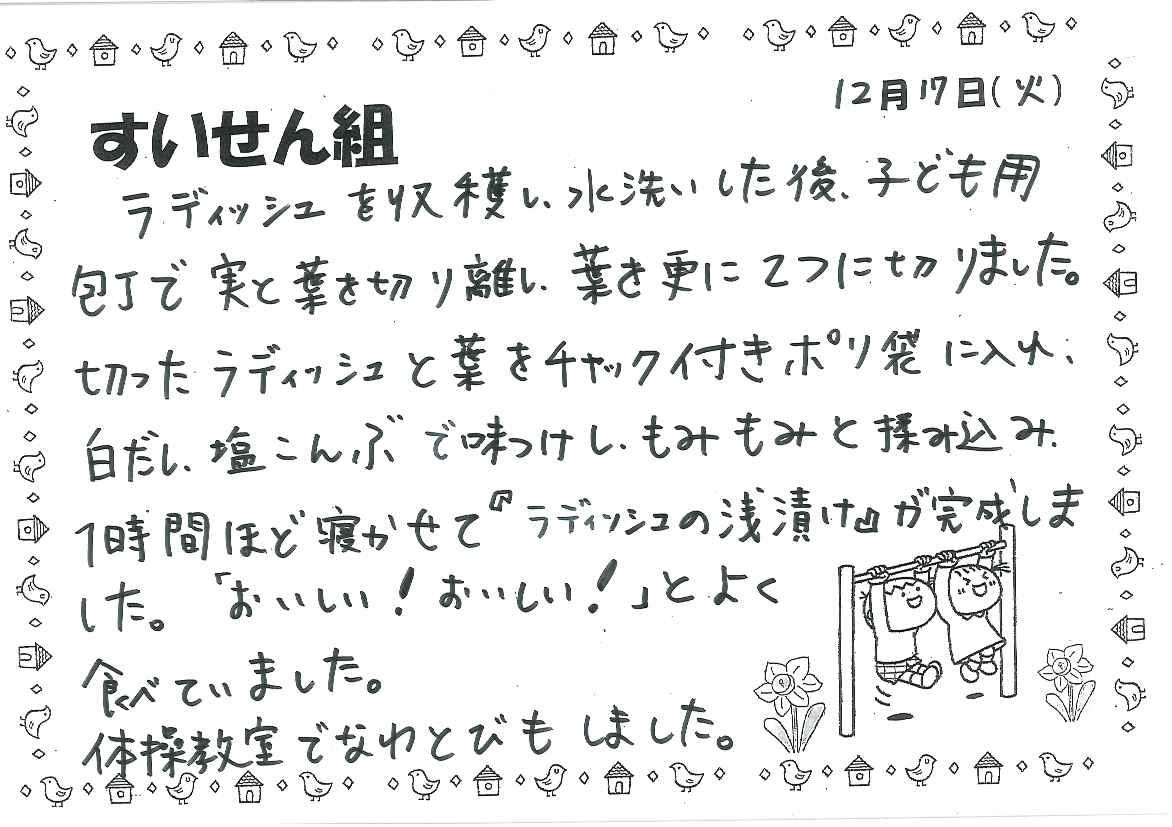 12月17日(火)
すいせん組
ラディッシュを収穫し、水洗いした後、子ども用
包丁で実と葉を切り離し、葉を更に2つに切りました。
切ったラディッシュと葉をチャック付きポリ袋に入れ、
白だし、塩こんぶで味つけし、もみもみと揉み込み、
1時間ほど寝かせて『ラディッシュの浅漬け』が完成しま
した。「おいしい!おいしい!」とよく
食べていました。
体操教室でなわとびもしました。